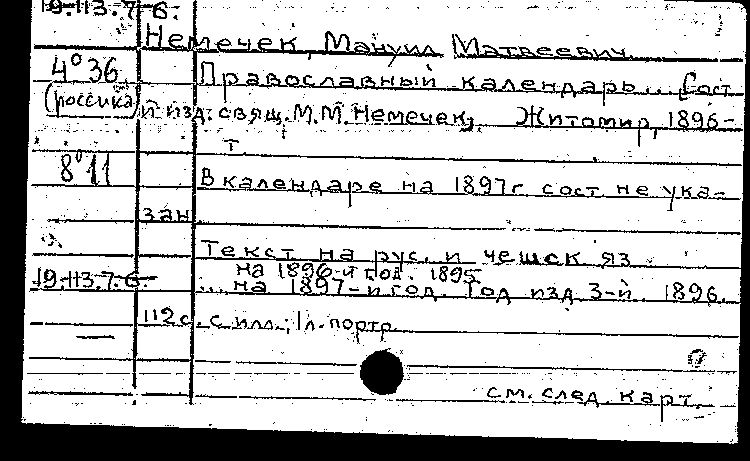 19.113.7.6.
Немечек, Мануил Матвеевич.
4° 36
(россика)
Православный календарь... [Сост.
и изд. свящ. М.М. Немечек]. Житомир, 1896-
т
8° 11
В календаре на 1897 г. сост. не ука-
зан.
Текст на рус. и чешск. яз.
на 1896-й год. 1895.
19.113.7.6.
... на 1897-й год. Год изд. 3-й. 1896.
112 с. с илл.; 1 л. портр.
см. след. карт.